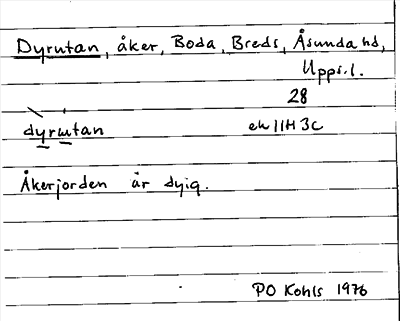 Dyrutan, åker, Boda, Breds, Åsunda hd,
Upps.l.
28
dyrɯtan ek 11H 3C
Åkerjorden är dyig.
PO Kohls 1976